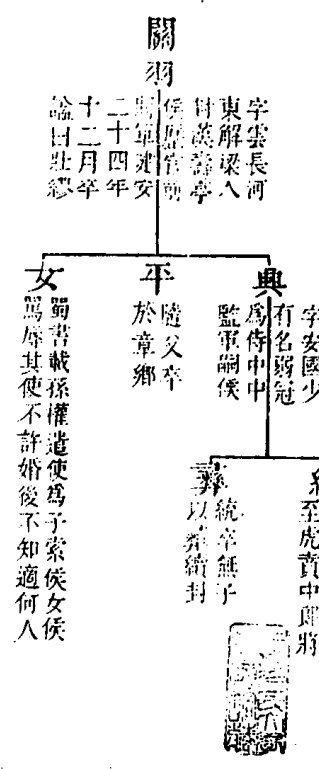 關羽
字雲長河
東解梁人
封漢壽亭
侯歷官前
將軍建安
二十四年
十二月卒
諡曰壯繆
興
字安國少
有名弱冠
為侍中中
監軍嗣侯
平
隨父卒
於章鄉
女
蜀書載孫權遣使為子索侯女侯
罵辱其使不許婚後不知適何人
統
至虎賁中郎將
彝
統卒無子
以彝續封